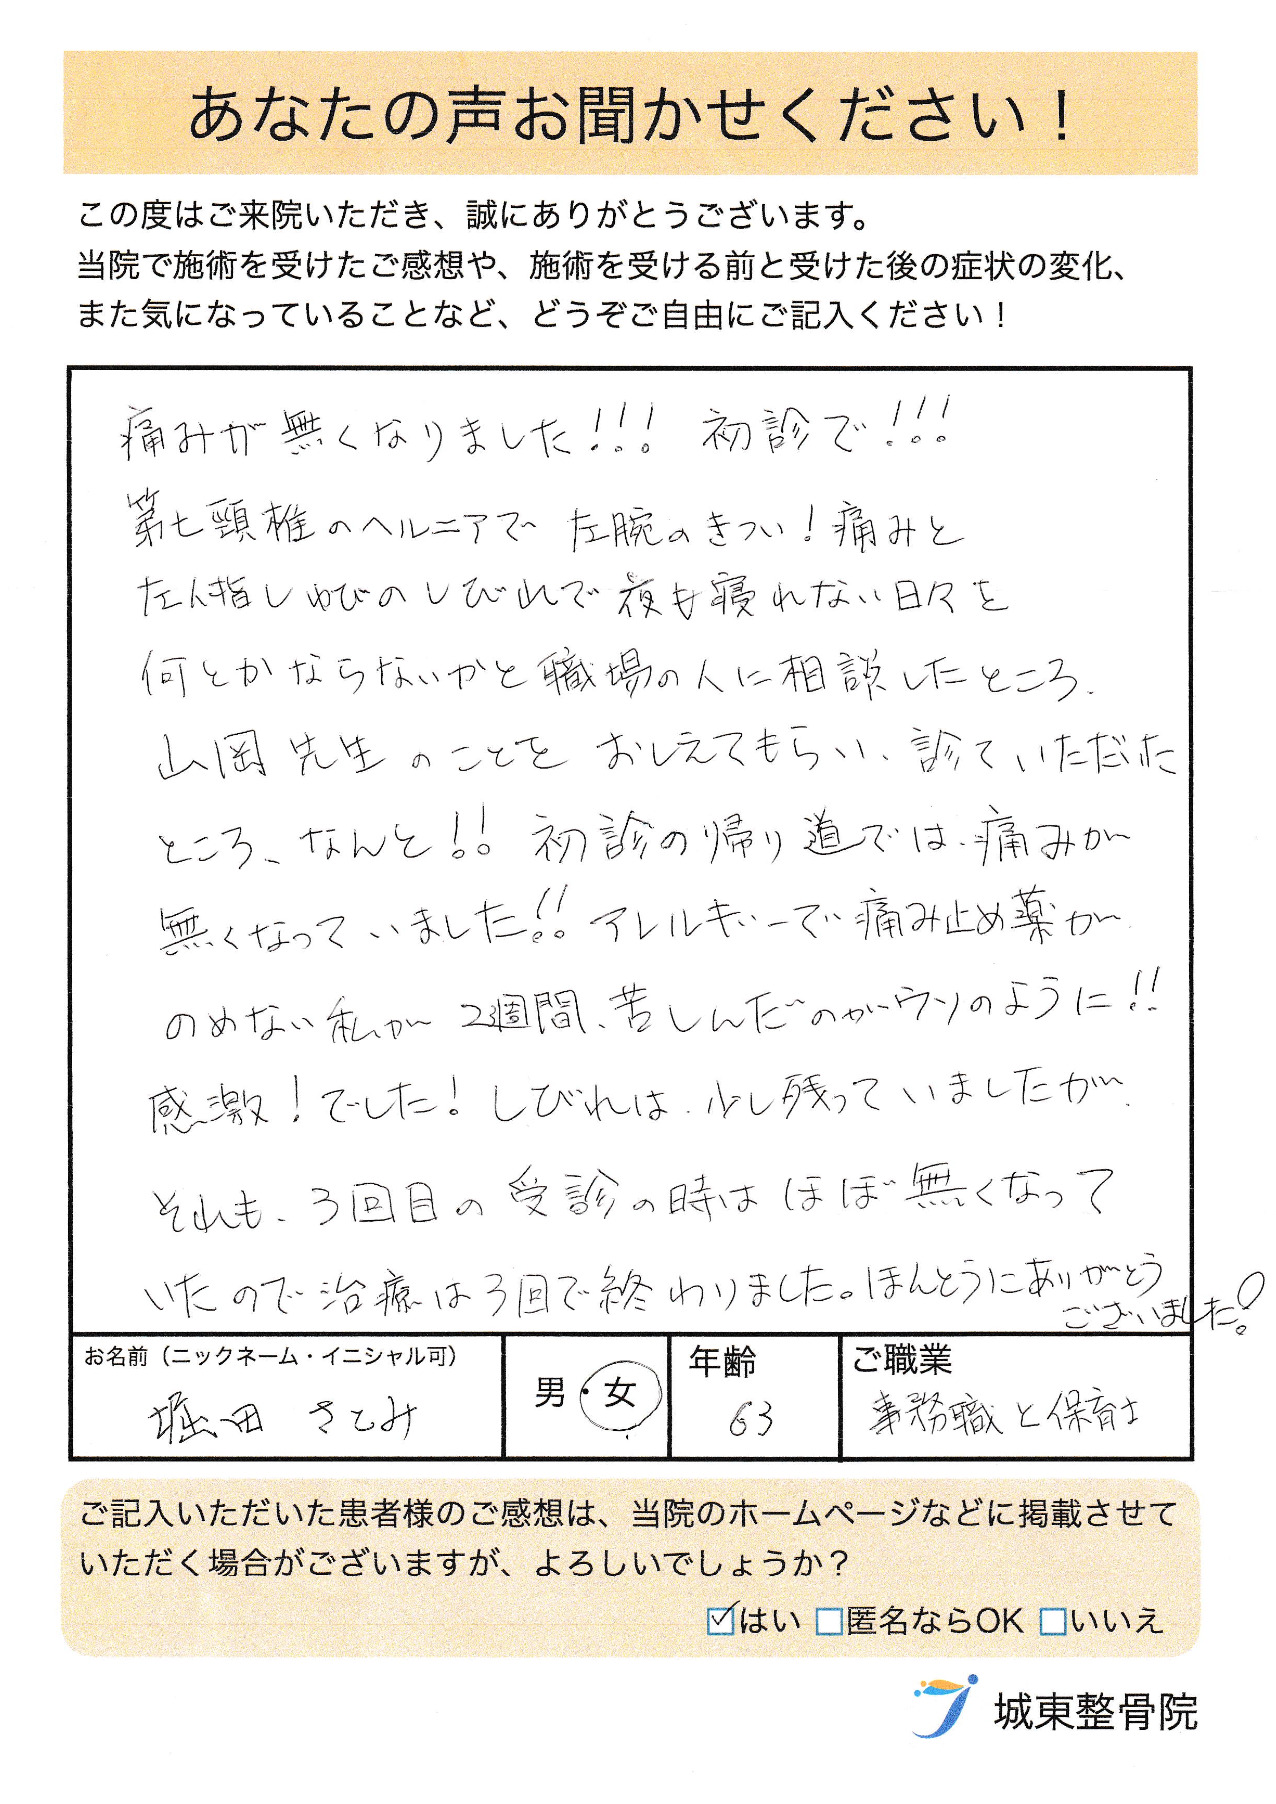 あなたの声お聞かせください！
この度はご来院いただき、誠にありがとうございます。
当院で施術を受けたご感想や、施術を受ける前と受けた後の症状の変化、
また気になっていることなど、どうぞご自由にご記入ください！
痛みが無くなりました!!! 初診で!!!
第七頸椎のヘルニアで 左腕のきつい！痛みと
左人指しゆびのしびれで夜も寝れない日々を
何とかならないかと職場の人に相談したところ、
山岡先生のことをおしえてもらい、診ていただた
ところ、なんと!! 初診の帰り道では、痛みが
無くなっていました!! アレルギーで痛み止め薬が
のめない私が 週間、苦しんだのがウソのように!!
感激！でした！しびれは、少し残っていましたが、
それも、3回目の受診の時はほぼ無くなって
いたので治療は3回で終わりました。ほんとうにありがとう
ございました!
お名前（ニックネーム・イニシャル可）
堀田 さとみ
男・女
年齢
63
ご職業
事務職と保育士
ご記入いただいた患者様のご感想は、当院のホームページなどに掲載させて
いただく場合がございますが、よろしいでしょうか？
☑はい □匿名ならOK □いいえ
城東整骨院